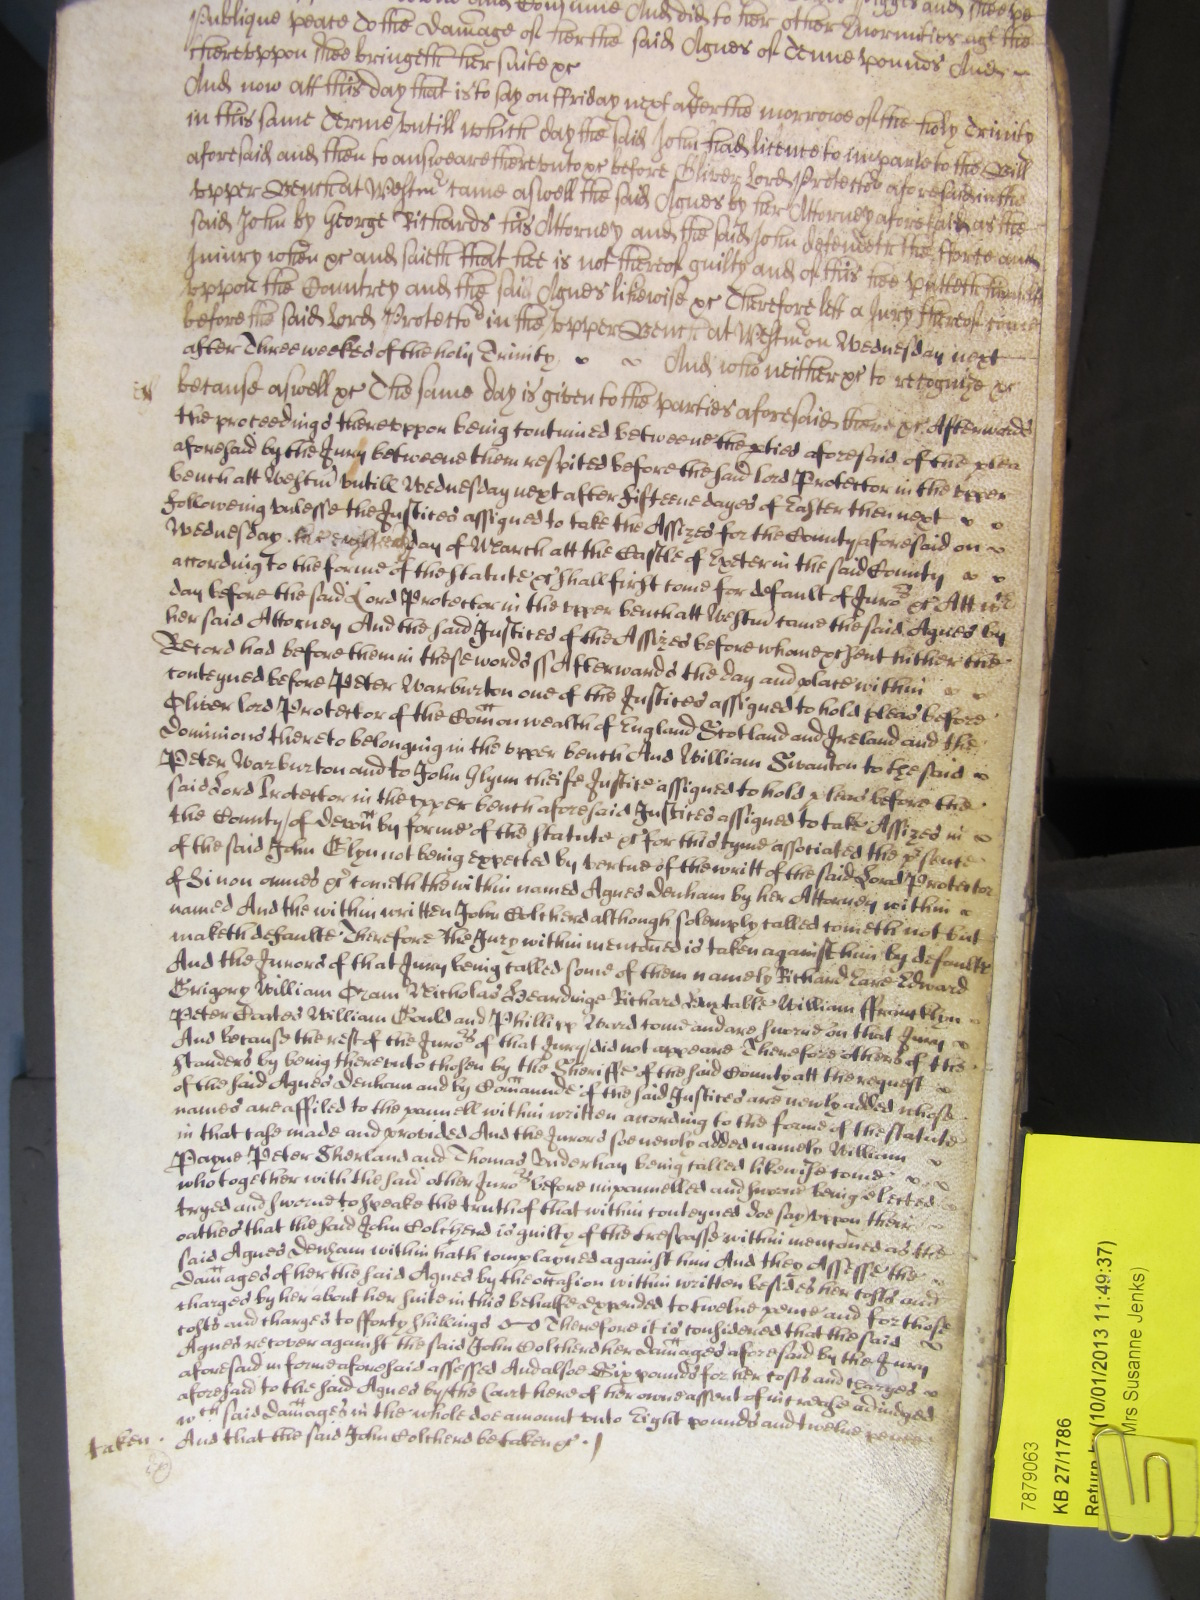 and Consume And did to her other Enormities agt the
Publique peace To the Damage of her the said Agnes of Tenne pounds And
thereuppon shee bringeth her suite &c
And now att this day that is to say on ffriday next after the morrowe of the holy Trinity
in this same Terme untill which day the said John had licence to imparle to the Bill
aforesaid and then to answeare thereunto &c before Oliver Lord Protector aforesaid in the
upper Bench at Westmr came aswell the said Agnes by her Attorney aforesaid as the
said John by George Richards his Attorney and the said John defendeth the fforce and
Iniury when &c and saith that hee is not thereof guilty and of this hee putteth himselfe
uppon the Countrey and the said Agnes likewise &c Therefore lett a Jury thereof come
before the said Lord Protector in the upper Bench at Westmr on Wednesday next
after Three weekes of the holy Trinity And who neither &c to recognize &c
because aswell &c The same day is given to the parties aforesaid there &c Afterwards
the proceedings thereuppon being continued betweene the pties aforesaid of the plea
aforesaid by the Jury betweene them respited before the said lord Protector in the upper
bench att Westmr untill Wednesday next after fifteene dayes of Easter then next
followeing unlesse the Justices assigned to take the Assizes for the County aforesaid on
Wednesday the day of March att the Castle of Exeter in the said County
according to the forme of the statute &c shall first come for default of Juros &c Att wch
day before the said Lord Protector in the upper bench att Westmr came the said Agnes by
her said Attorney And the said Justices of the Assizes before whome &c sent hither the
Record had before them in these words ss Afterwards the day and place within
conteyned before Peter Warburton one of the Justices assigned to hold pleas before
Oliver lord Protector of the Comon wealth of England Scotland and Ireland and the
Dominions thereto belonging in the upper bench And William Swanton to the said
Peter Warburton and to John Glynn cheife Justice assigned to hold pleas before the
said Lord Protector in the upper bench aforesaid Justices assigned to take Assizes in
the County of Devon by forme of the statute &c for this tyme associated the psence
of the said John Glyn not being expected by vertue of the writt of the said Lord Protector
of Si non omnes &c cometh the within named Agnes Denham by her Attorney within
named And the within written John Colcherd although solemply called cometh not but
maketh defaulte Therefore the Jury within mentoned is taken against him by defaulte
And the Jurors of that Jury being called some of them namely Richard Lare Edward
Grigory William Cram Nicholas Heardinge Richard William ffrancklyn
Peter Coates William Gould and Phillipp Ward come and are sworne on that Jury
And because the rest of the Juros of that Jury did not appeare Therefore others of the
standers by being thereunto chosen by the Sheriffe of the said County att the request
of the said Agnes Denham and by Comaunde of the said Justices are newly added whose
names are affiled to the pannell within written according to the forme of the statute
in that case made and provided And the Jurors soe newly added namely William
Payne Peter Sherland and Thomas Underhay being called likewise come
who together with the said other Juros before impannelled and sworne being elected
tryed and sworne to speake the truth of that within conteyned doe say uppon their
oathes that the said John Colcherd is guilty of the trespasse within mentoned as the
said Agnes Denham within hath complayned against him And they Assesse the
Damages of her the said Agnes by the occasion within written besides her costs and
charges by her about her suite in this behalfe expended to twelve pence and for those
costs and charges to fforty shillings Therefore it is considered that the said
Agnes recover against the said John Colcherd her damages aforesaid by the Jury
aforesaid in forme aforesaid assessed And alsoe Six pounds for her costs and charges
aforesaid to the said Agnes by the Court here of her owne assent of increase adiudged
wch said damages in the whole doe amount unto Eight pounds and twelve pence
taken. And that the said John Colcherd be taken &c.
7879063
KB 27/1786
Return (10/01/2013 11:49:37)
Mrs Susanne Jenks)